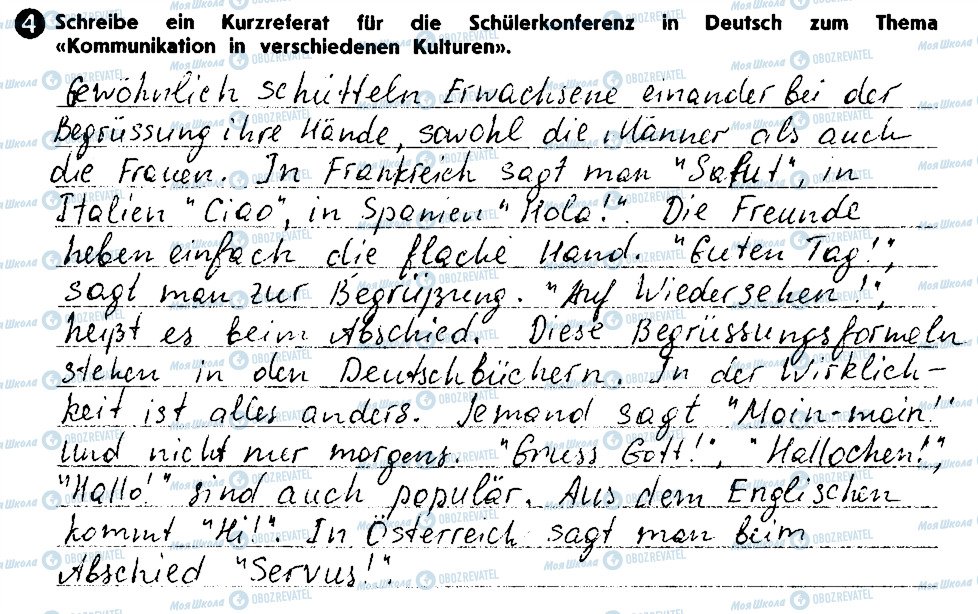 4 Schreibe ein Kurzreferat für die Schülerkonferenz in Deutsch zum Thema
«Kommunikation in verschiedenen Kulturen».
Gewöhnlich schütteln Erwachsene einander bei der
Begrüssung ihre Hände, sowohl die Männer als auch
die Frauen. In Frankreich sagt man "Salut", in
Italien "Ciao", in Spanien "Hola!". Die Freunde
heben einfach die flache Hand. "Guten Tag!",
sagt man zur Begrüßung. "Auf Wiedersehen!",
heißt es beim Abschied. Diese Begrüssungsformeln
stehen in den Deutschbüchern. In der Wirklich-
keit ist alles anders. Jemand sagt "Moin-moin!"
Und nicht nur morgens. "Gruess Gott!", "Hallochen!",
"Hallo!" sind auch populär. Aus dem Englischen
kommt "Hi!". In Österreich sagt man beim
Abschied "Servus!".
МояШкола OBOZREVATEL